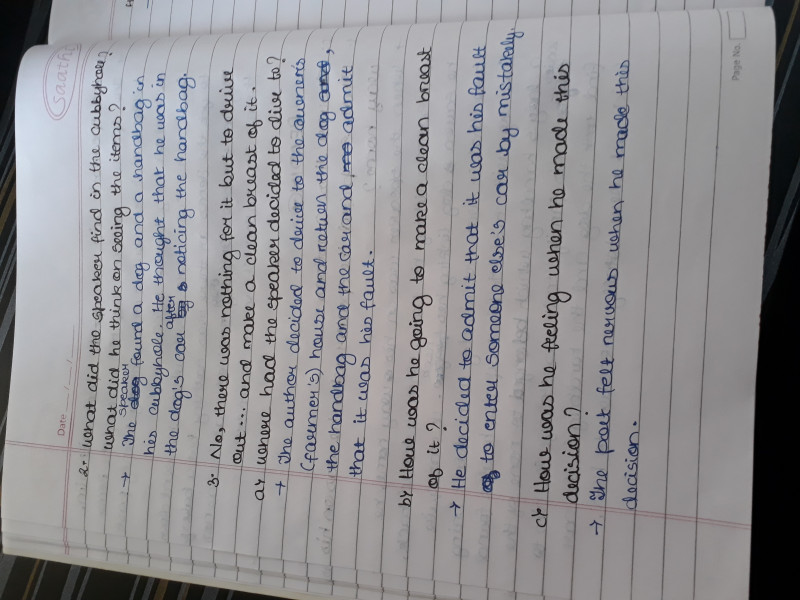 saathi
Date __/__/__
2. What did the speaker find in the cubbyhole?
What did he think on seeing the items?
speaker
→ The found a dog and a handbag in
his cubbyhole. He thought that he was in
after
the dog's car noticing the handbag.
3. No, there was nothing for it but to drive
out... and make a clean breast of it.
a) Where had the speaker decided to dive to?
→ The author decided to driver to the owners
(farmer's) house and return the dog,
the handbag and the car and, admit
that it was his fault.
b) How was he going to make a clean breast
of it?
→ He decided to admit that it was his fault
to enter someone else's car by mistakely.
c) How was he feeling when he made this
decision?
→ The poet felt nervous when he made this
decision.
Page No.